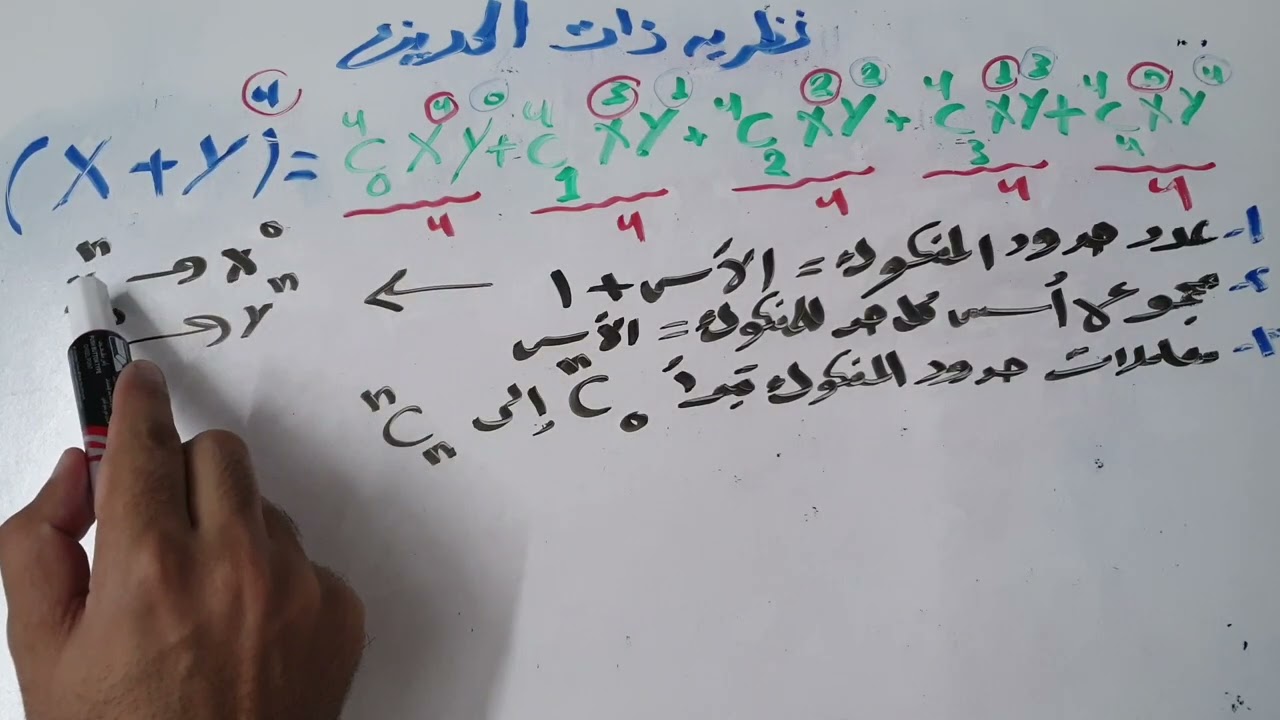 نظريه ذات الحدين
(X+Y)⁴ = ⁴C₀ X⁴Y⁰ + ⁴C₁ X³Y¹ + ⁴C₂ X²Y² + ⁴C₃ X¹Y³ + ⁴C₄ X⁰Y⁴
4 4 4 4 4
1- عدد حدود المفكوك = الأس + 1
2- مجموع أسس كل حد للمفكوك = الأس
3- معاملات حدود المفكوك تبدأ ⁿC₀ إلى ⁿCₙ
ⁿ → X⁰
→ Yⁿ